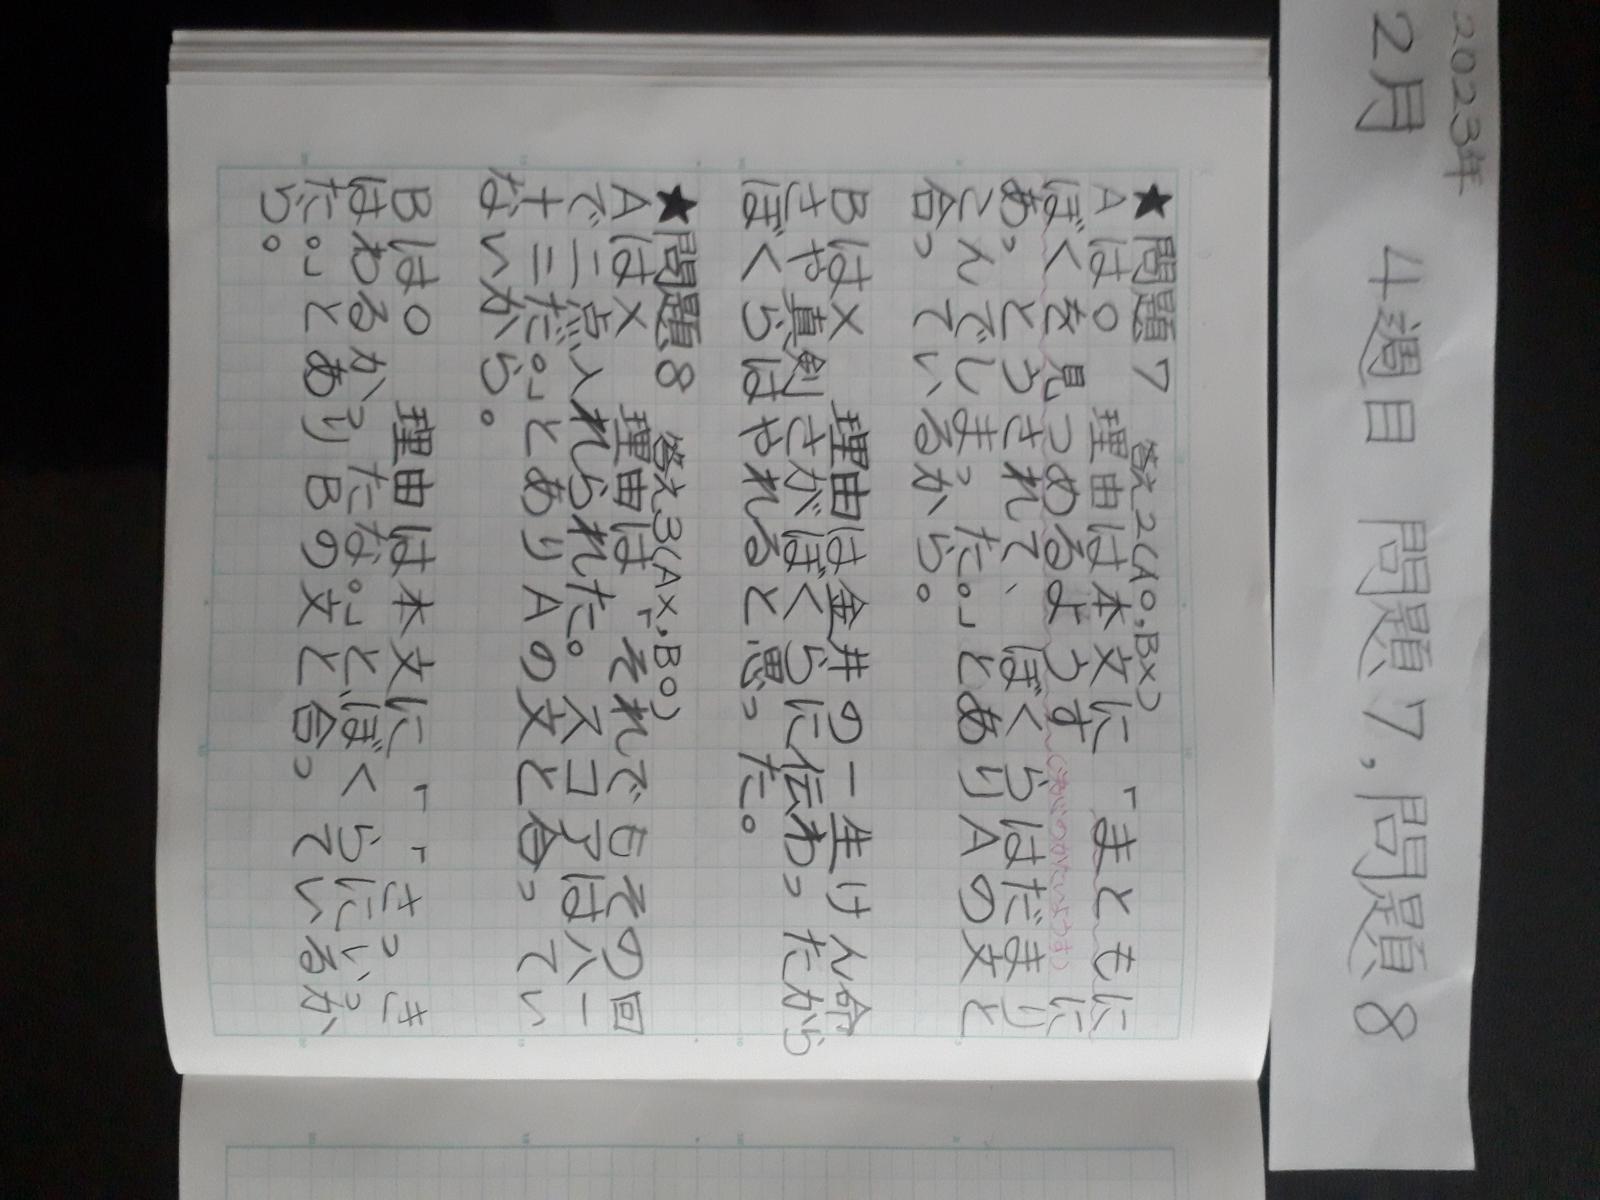 2023年
2月 4週目 問題7,問題8
★問題7 答え2(A○,B×)
A は○ 理由は本文に「まともに
ぼくを見つめるようすに
あっとうされて、ぼくらはだまり
こんでしまった。」とありAの文と
合っているから。
Bは× 理由は金井の一生けん命
さや真剣さがぼくらに伝わったから
ぼくらはやれると思った。
★問題8 答え3(A×,B○)
Aは× 理由は「それでもその回
で二点入れられた。スコアは八一
十三だ。」とありAの文と合ってい
ないから。
Bは○ 理由は本文に「「さっき
はわるかったな。」とぼくらにいっ
た。」とありBの文と合っているか
ら。